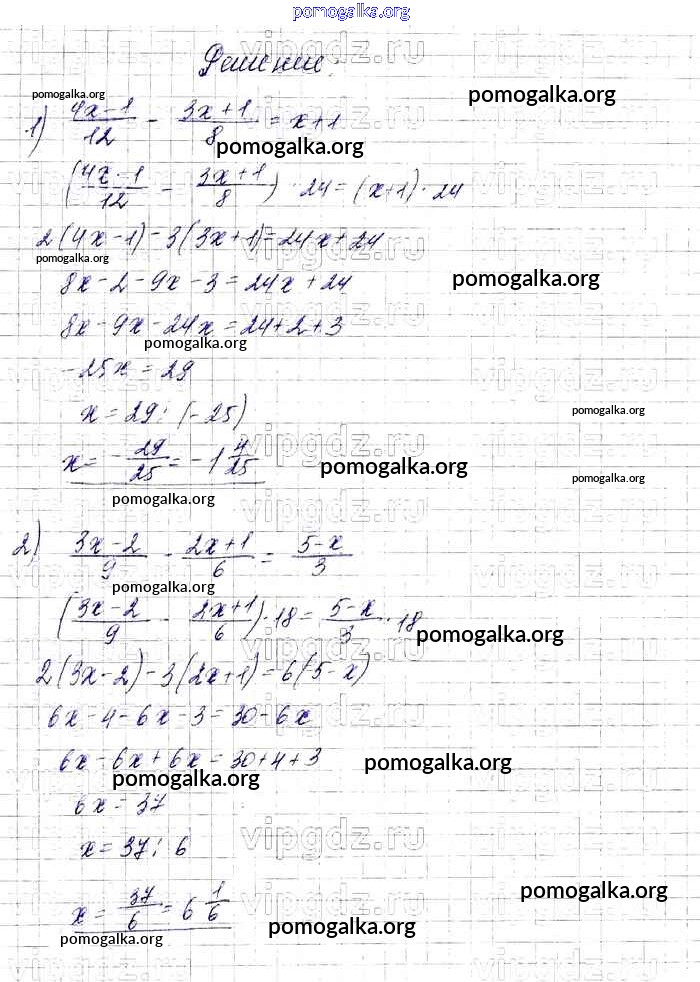 pomogalka.org
Решение:
pomogalka.org
pomogalka.org
1) (4x-1)/12 - (3x+1)/8 = x+1
pomogalka.org
((4x-1)/12 - (3x+1)/8) · 24 = (x+1) · 24
2(4x-1)-3(3x+1)=24x+24
pomogalka.org
8x-2-9x-3=24x+24
pomogalka.org
8x-9x-24x=24+2+3
pomogalka.org
-25x=29
x=29:(-25)
pomogalka.org
x=-29/25=-1 4/25
pomogalka.org
pomogalka.org
pomogalka.org
2) (3x-2)/9 - (2x+1)/6 = (5-x)/3
pomogalka.org
((3x-2)/9 - (2x+1)/6) · 18 = (5-x)/3 · 18
pomogalka.org
2(3x-2)-3(2x+1)=6(5-x)
6x-4-6x-3=30-6x
6x-6x+6x=30+4+3
pomogalka.org
pomogalka.org
6x=37
x=37:6
x=37/6=6 1/6
pomogalka.org
pomogalka.org
pomogalka.org
vipgdz.ru